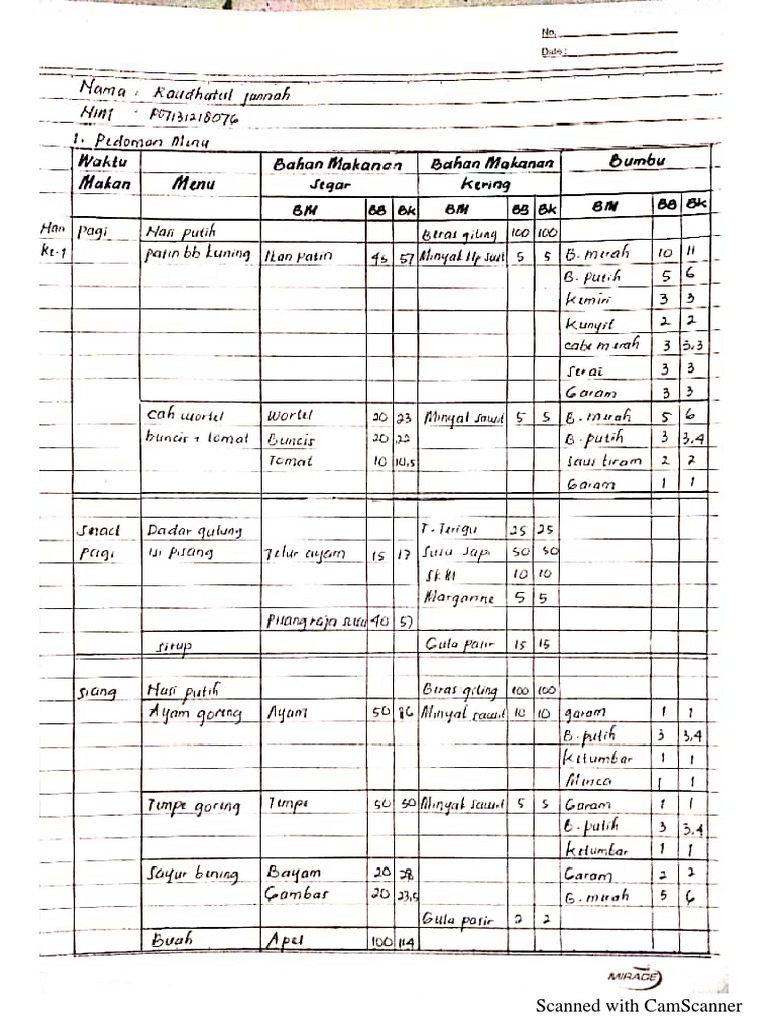 No.
Date :
Nama : Raudhatul Jannah
NIM : P07131218076
1. Pedoman Menu
Waktu Makan Menu Bahan Makanan Segar Bahan Makanan Kering Bumbu
BM BB BK BM BB BK BM BB BK
Hari Pagi Nasi putih Beras giling 100 100
Ke-1 patin bb kuning Ikan Patin 45 57 Minyak Klp sawit 5 5 B. merah 10 11
B. putih 5 6
Kemiri 3 3
Kunyit 2 2
cabe merah 3 3,3
Serai 3 3
Garam 3 3
cah wortel Wortel 20 23 Minyak sawit 5 5 B. merah 5 6
buncis + tomat Buncis 20 22 B. putih 3 3,4
Tomat 10 10,5 Saus tiram 2 2
Garam 1 1
Snack Dadar gulung T. Terigu 25 25
Pagi isi pisang Telur ayam 15 17 Susu sapi 50 50
SKM 10 10
Margarine 5 5
Pisang raja susu 40 57
sirup Gula pasir 15 15
Siang Nasi putih Beras giling 100 100
Ayam goreng Ayam 50 86 Minyak sawit 10 10 garam 1 1
B. putih 3 3,4
Ketumbar 1 1
Merica 1 1
Tempe goreng Tempe 50 50 Minyak sawit 5 5 Garam 1 1
B. putih 3 3,4
Ketumbar 1 1
Sayur bening Bayam 20 28 Garam 2 2
Gambas 20 23,5 B. merah 5 6
Gula pasir 2 2
Buah Apel 100 114
MIRAGE
Scanned with CamScanner